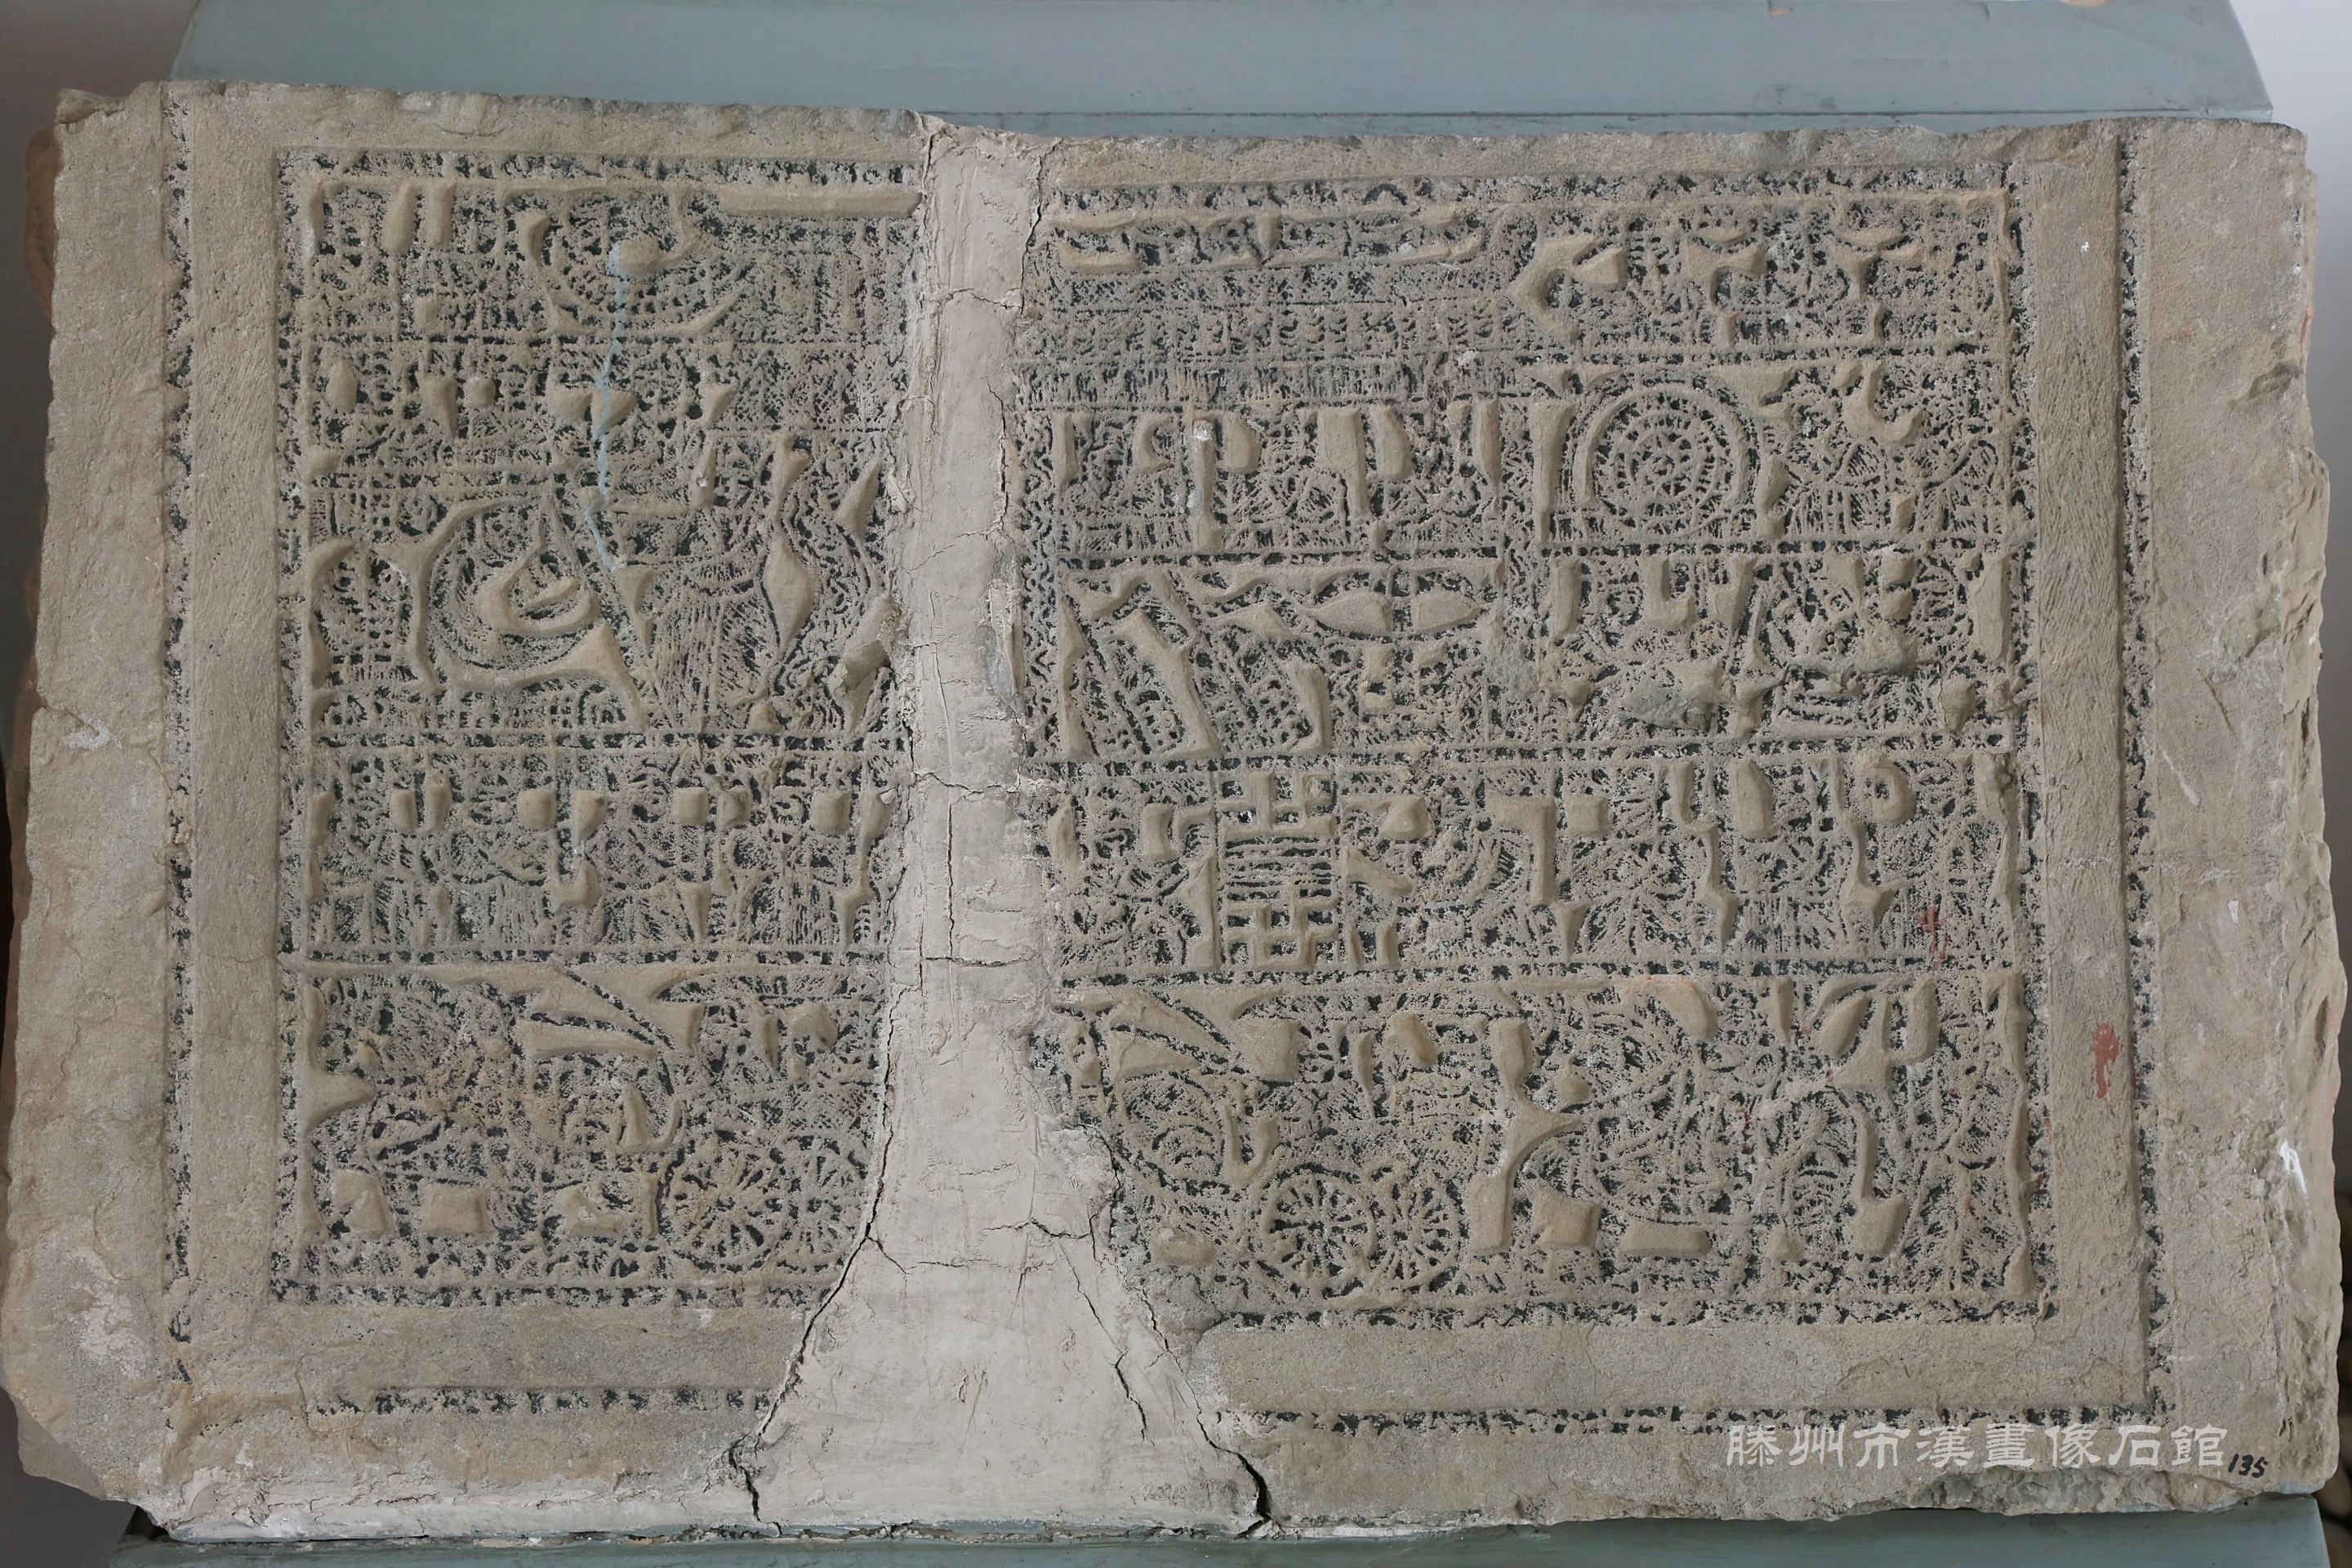 滕州市漢畫像石館
135